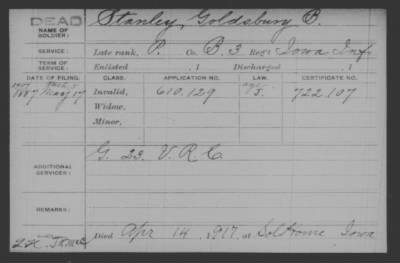 DEAD
NAME OF SOLDIER: Stanley, Goldsbury B.
SERVICE: Late rank, P. Co. B. 3 Reg't Iowa Inf.
TERM OF SERVICE: Enlisted , 1 Discharged , 1
DATE OF FILING. CLASS. APPLICATION NO. LAW. CERTIFICATE NO.
1887 May 17 Invalid, 610.129 722.107
Widow,
Minor,
ADDITIONAL SERVICES: G. 23. V. R. C.
REMARKS:
Died Apr 14, 1917, at Sol Home Iowa